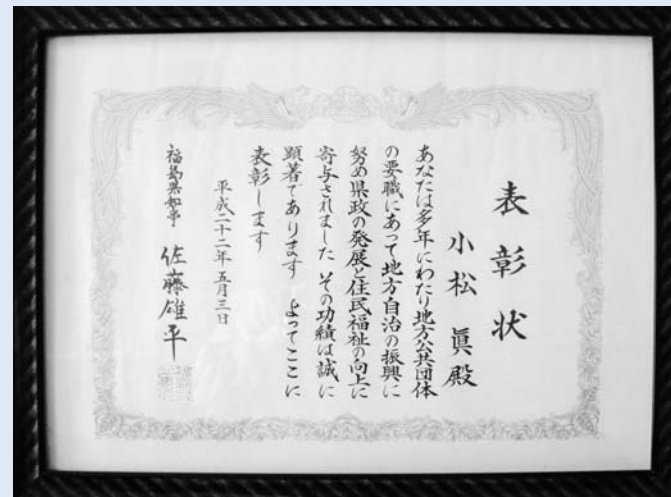 表彰状
小松 眞殿
あなたは多年にわたり地方公共団体
の要職にあって地方自治の振興に
努め県政の発展と住民福祉の向上に
寄与されました その功績は誠に
顕著であります よってここに
表彰します
平成二十二年五月三日
福島県知事 佐藤雄平